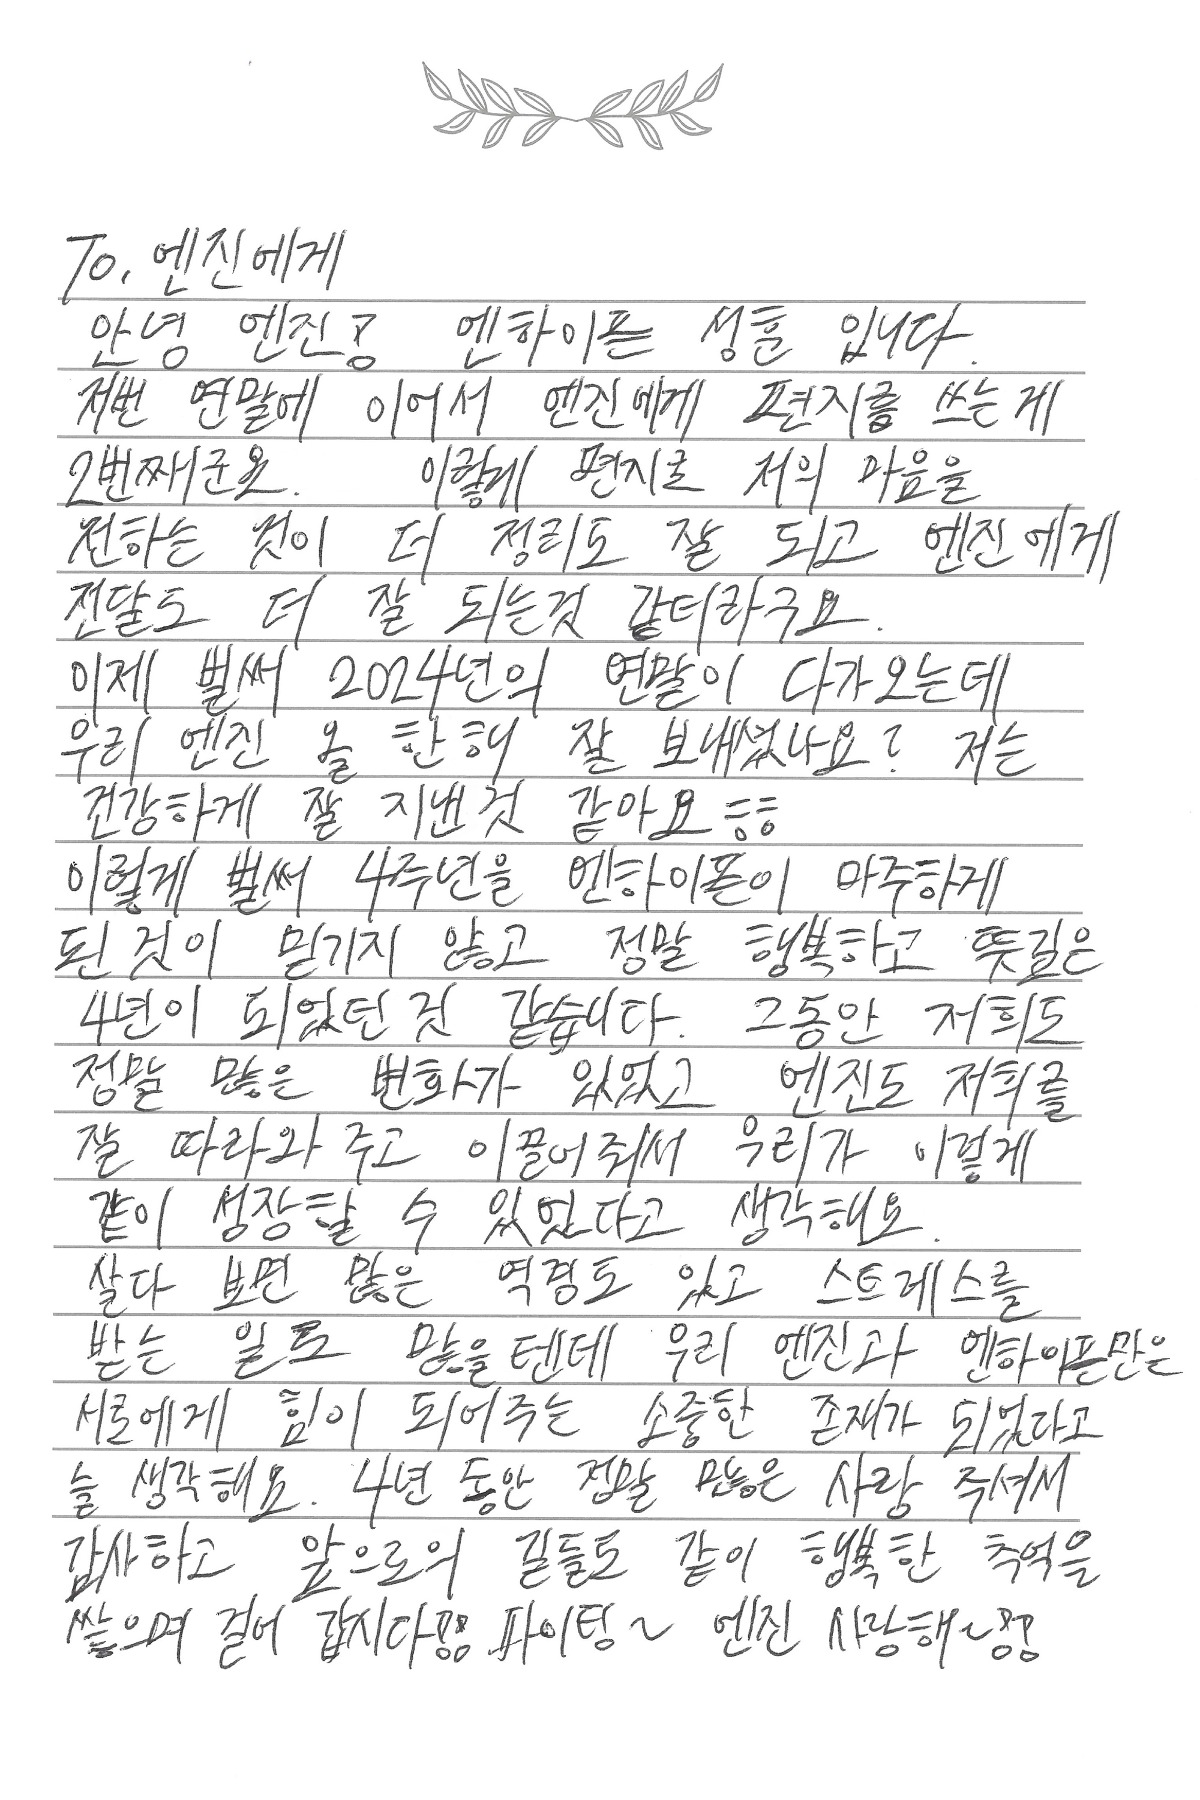 To. 엔진에게
안녕 엔진!! 엔하이픈 성훈 입니다.
저번 연말에 이어서 엔진에게 편지를 쓰는게
2번째군요. 이렇게 편지로 저의 마음을
전하는 것이 더 정리도 잘 되고 엔진에게
전달도 더 잘 되는것 같더라구요.
이제 벌써 2024년의 연말이 다가오는데
우리 엔진 올 한해 잘 보내셨나요? 저는
건강하게 잘 지낸것 같아요ㅎㅎ
이렇게 벌써 4주년을 엔하이픈이 마주하게
된 것이 믿기지 않고 정말 행복하고 뜻깊은
4년이 되었던 것 같습니다. 그동안 저희도
정말 많은 변화가 있었고 엔진도 저희를
잘 따라와 주고 이끌어줘서 우리가 이렇게
같이 성장할 수 있었다고 생각해요.
살다 보면 많은 역경도 있고 스트레스를
받는 일도 많을텐데 우리 엔진과 엔하이픈만은
서로에게 힘이 되어주는 소중한 존재가 되었다고
늘 생각해요. 4년 동안 정말 많은 사랑 주셔서
감사하고 앞으로의 길들도 같이 행복한 추억을
쌓으며 걸어 갑시다!! 파이팅~ 엔진 사랑해~!!